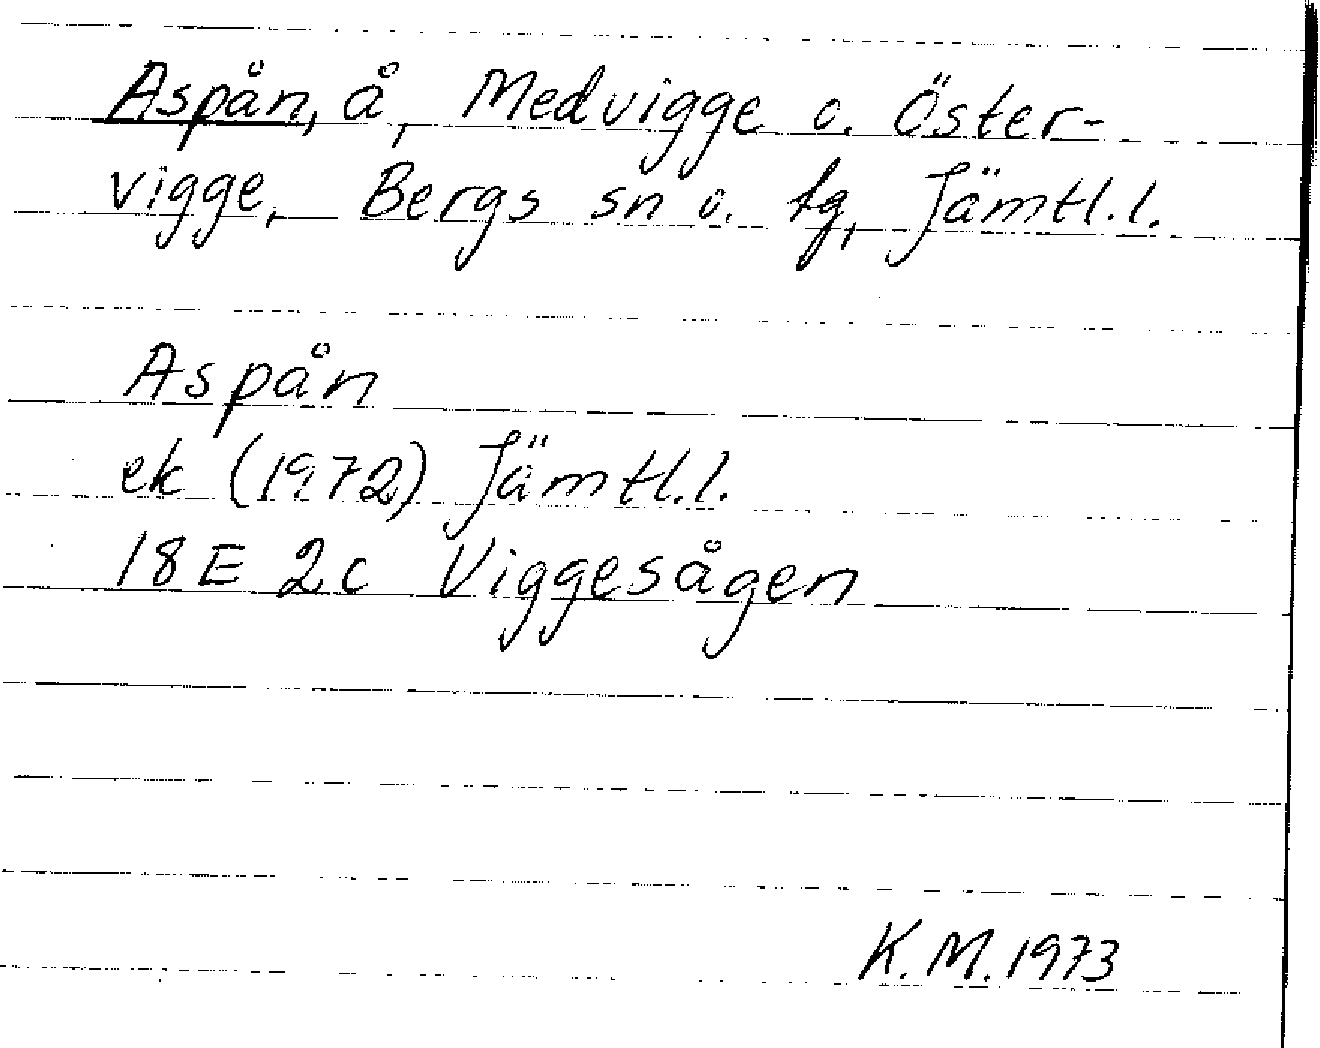 Aspån, å, Medvigge o. Öster-
vigge, Bergs sn o. tg, Jämtl.l.
Aspån
ek (1972) Jämtl.l.
18E 2c Viggesågen
K.M. 1973